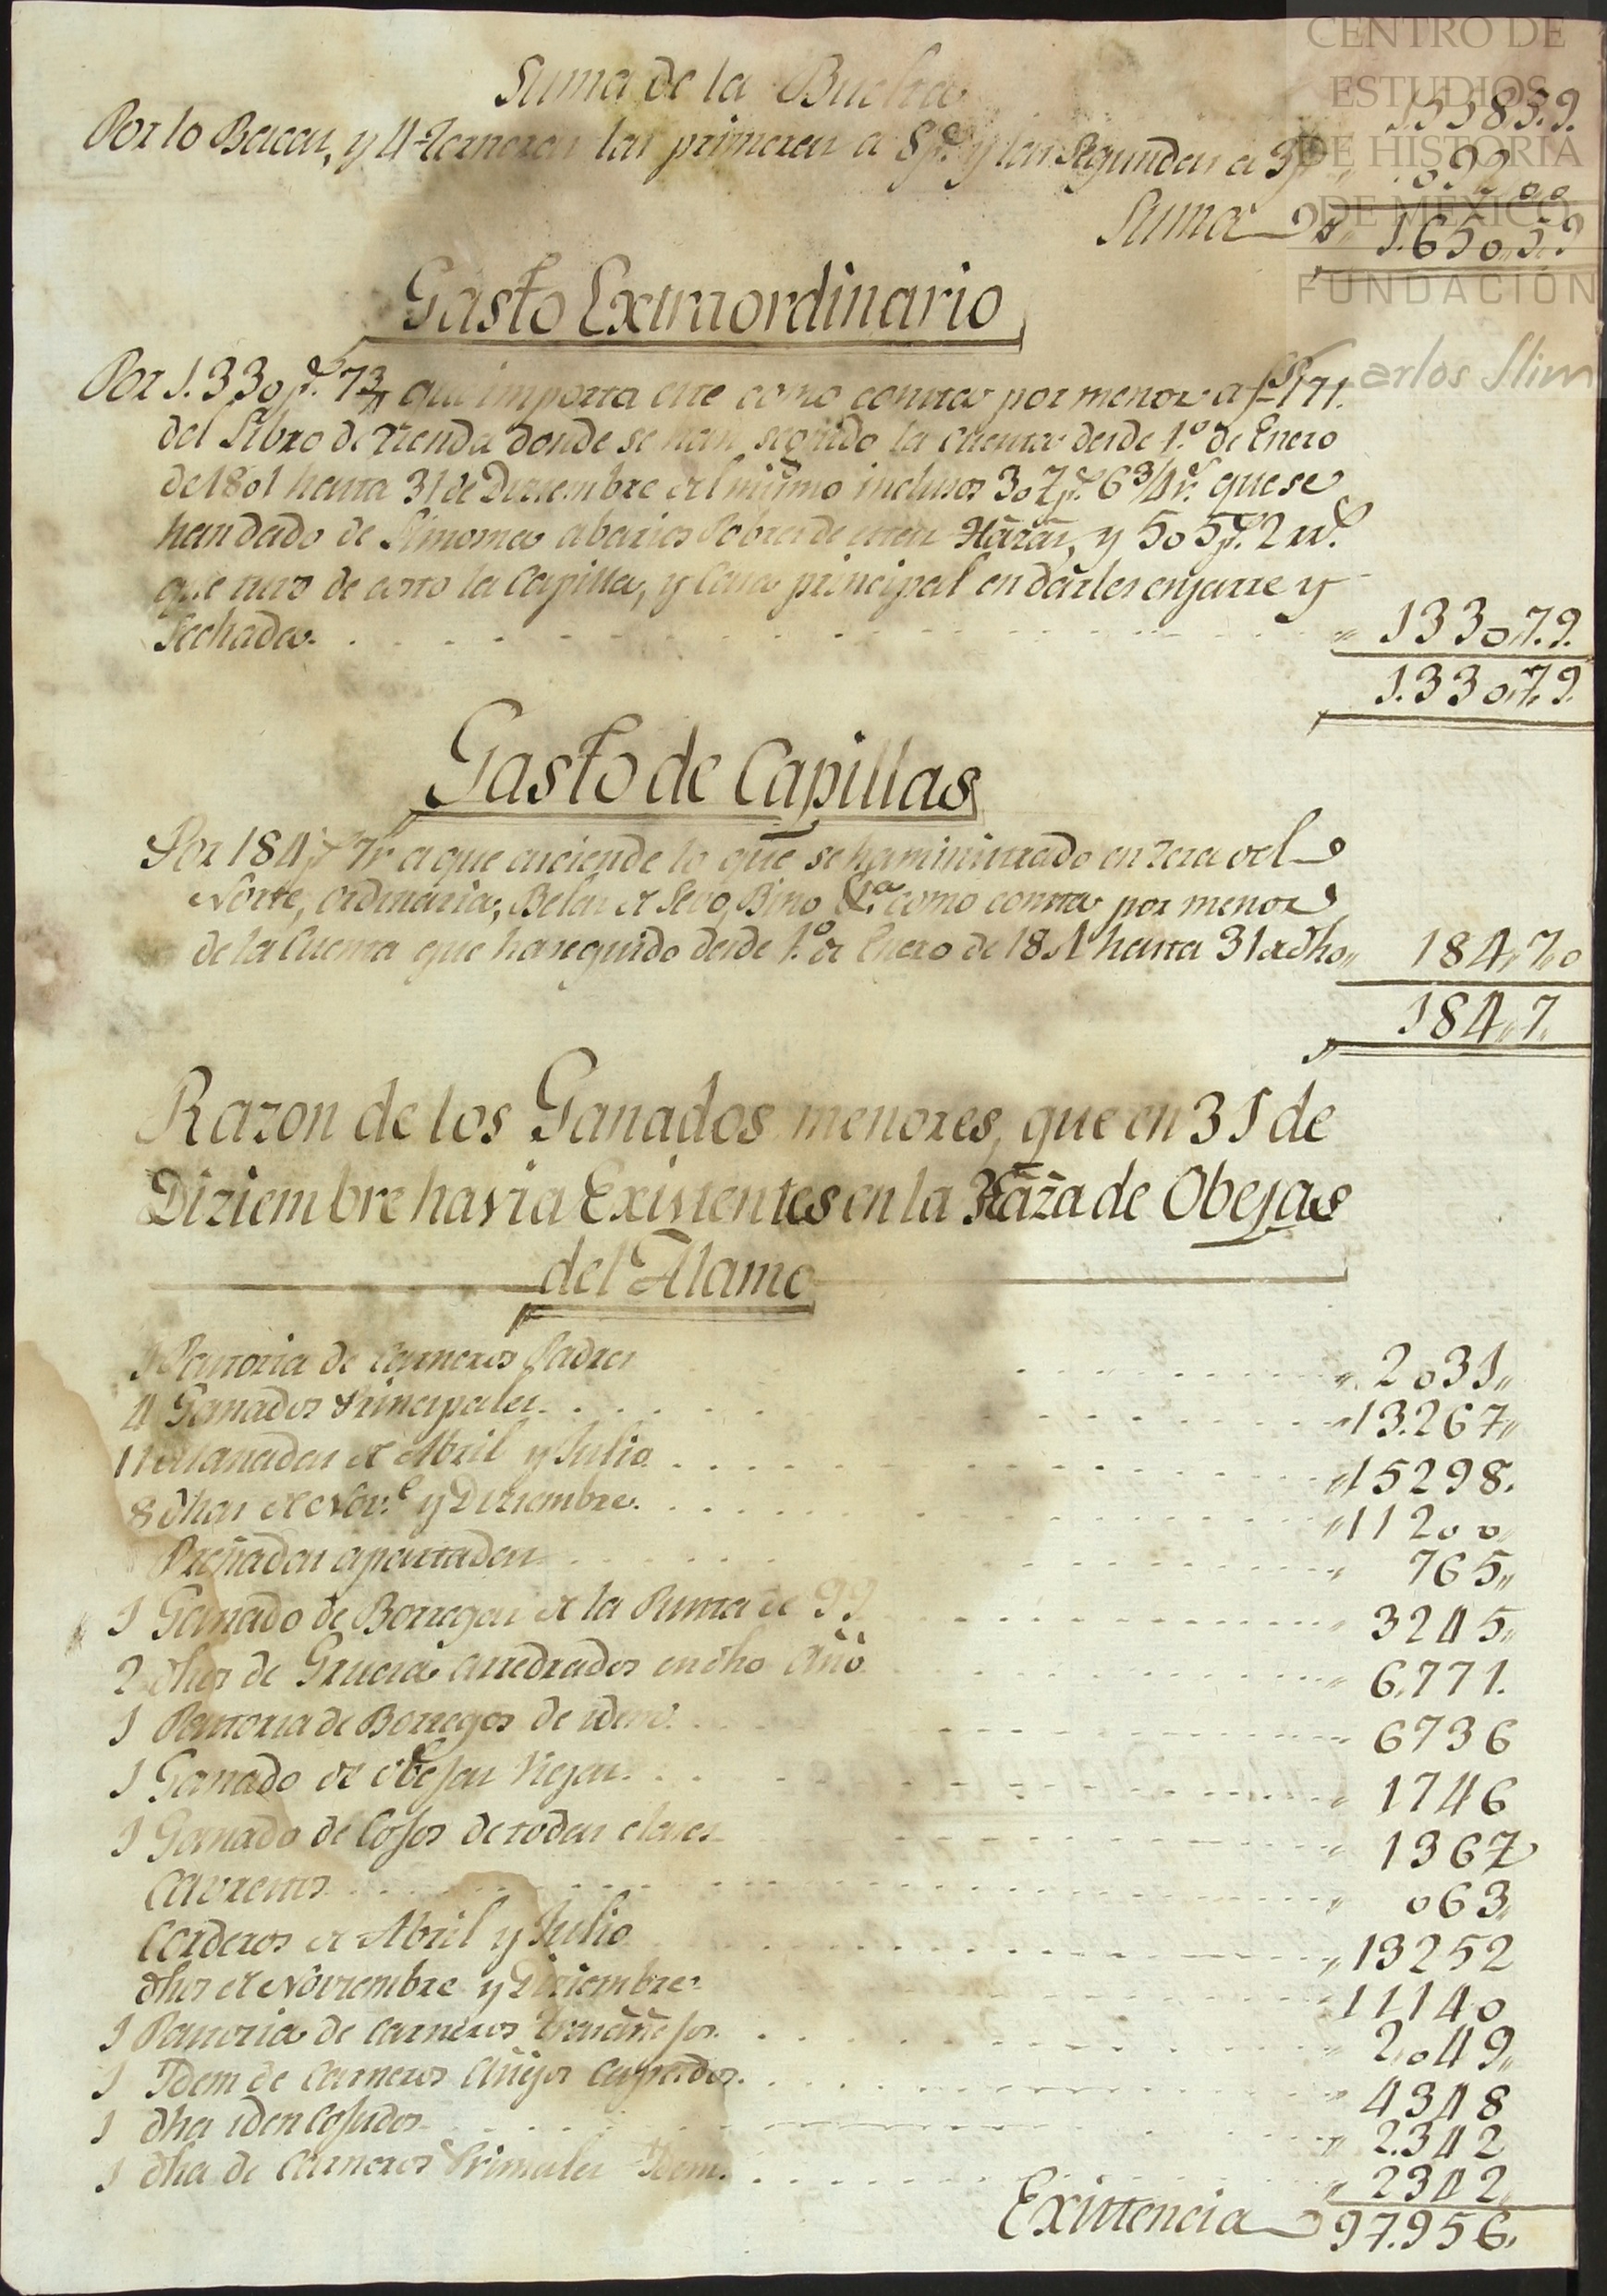 CENTRO DE
ESTUDIOS
DE HISTORIA
DE MÉXICO
FUNDACIÓN
Carlos Slim
Suma de la Buelta 1.558.5.9.
Por 10 Bacas, y 4 Terneras las primeras a 8 p.s y las Segundas a 3 p.s .. 092,,00
Suma 1.650,,5.9
Gasto Extraordinario
Por 1.330 p.s 7¾ que importa este como consta por menor a f.s 171.
del Libro de tienda donde se han seguido la cuenta desde 1.º de Enero
de 1801 hasta 31 de Diziembre del mismo inclusos 307 p.s 6¾ r.s que se
han dado de Limosna a barios Pobres de estas Haz.as, y 505 p.s 2 rr.s
que tubo de costo la Capilla, y Casa principal en darles enjarre y
fachada. . . . . . . . ,, 1330,,7.9.
1.330,,7.9.
Gasto de Capillas
Por 184 p.s 7 r.s a que asciende lo que se ha ministrado en zera del
Norte, ordinaria, Belas de Sevo, Bino &.a como consta por menor
de la Cuenta que ha seguido desde 1.º de Enero de 1801 hasta 31 de dho ,, 184,,7,,0
184,,7.
Razon de los Ganados menores, que en 31 de
Diziembre havia Existentes en la Haz.a de Obejas
del Alamo
1 Pastoria de Carneros Padres . . . . ,, 2031,,
4 Ganados Principales . . . . ,, 13.267,,
11 Manadas de Abril y Julio . . . . ,, 15298.
8 dhas de Nov.e y Diziembre . . . . ,, 11200,,
Preñadas apartadas . . . . ,, 765,,
1 Ganado de Borregas de la Punta de 99 . . . . ,, 3245,,
2 dhos de Grueza arredrados en dho año . . . . ,, 6.771.
1 Pastoria de Borregos de idem . . . . 6736
1 Ganado de obejas Viejas . . . . ,, 1746
1 Ganado de Cojos de todas clases . . . . ,, 1367
Cabrestos . . . . ,, 063,,
Corderos de Abril y Julio . . . . ,, 13252
dhos de Noviembre y Diziembre . . . . 11140
1 Pastoria de Carneros trasañejos . . . . ,, 2.049,,
1 Idem de Carneros añejos Capados . . . . ,, 4348
1 dha iden Cojudos . . . . ,, 2.342
1 dha de Carneros Primales Idem . . . . ,, 2342,,
Existencia 97.956.